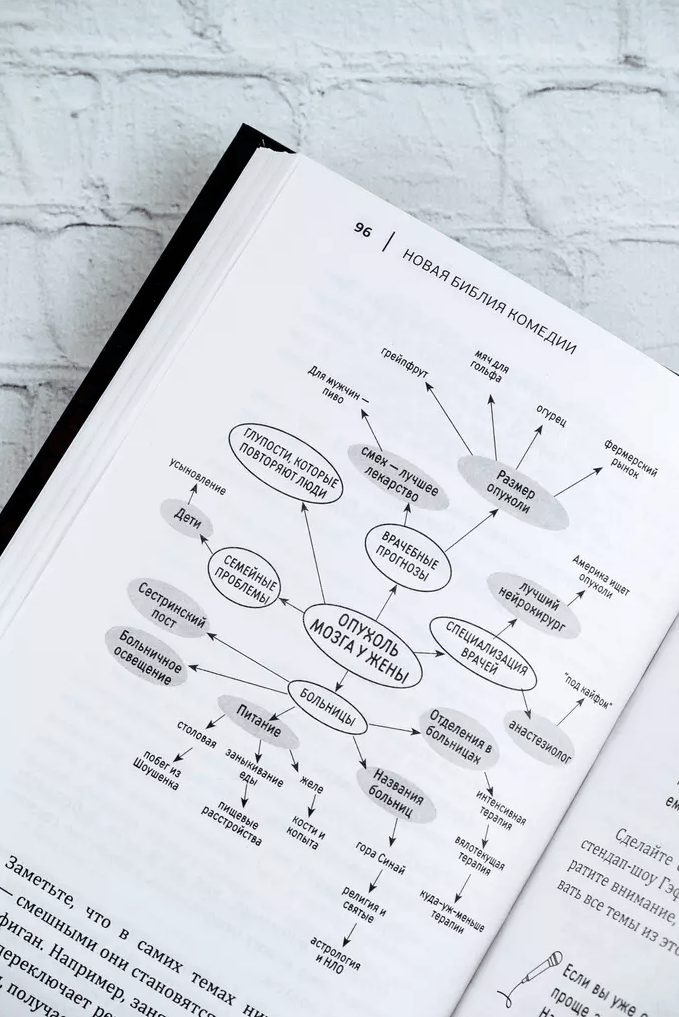 96
НОВАЯ БИБЛИЯ КОМЕДИИ
Для мужчин —
пиво
грейпфрут
мяч для
гольфа
огурец
фермерский
рынок
ГЛУПОСТИ, КОТОРЫЕ
ПОВТОРЯЮТ ЛЮДИ
смех — лучшее
лекарство
Размер
опухоли
усыновление
Дети
СЕМЕЙНЫЕ
ПРОБЛЕМЫ
ВРАЧЕБНЫЕ
ПРОГНОЗЫ
лучший
нейрохирург
Америка ищет
опухоли
Сестринский
пост
Больничное
освещение
ОПУХОЛЬ
МОЗГА У ЖЕНЫ
СПЕЦИАЛИЗАЦИЯ
ВРАЧЕЙ
"под кайфом"
анастезиолог
БОЛЬНИЦЫ
Питание
Отделения в
больницах
столовая
побег из
Шоушенка
заныкивание
еды
пищевые
расстройства
желе
кости и
копыта
Названия
больниц
гора Синай
религия и
святые
астрология
и НЛО
интенсивная
терапия
вялотекущая
терапия
куда-уж-меньше
терапии
Заметьте, что в самих темах
— смешными они становятся
фиган. Например,
переключает
получа
Сделайте
стендап-шоу Гэф
ратите внимание,
вать все темы из это
Если вы уже
проще